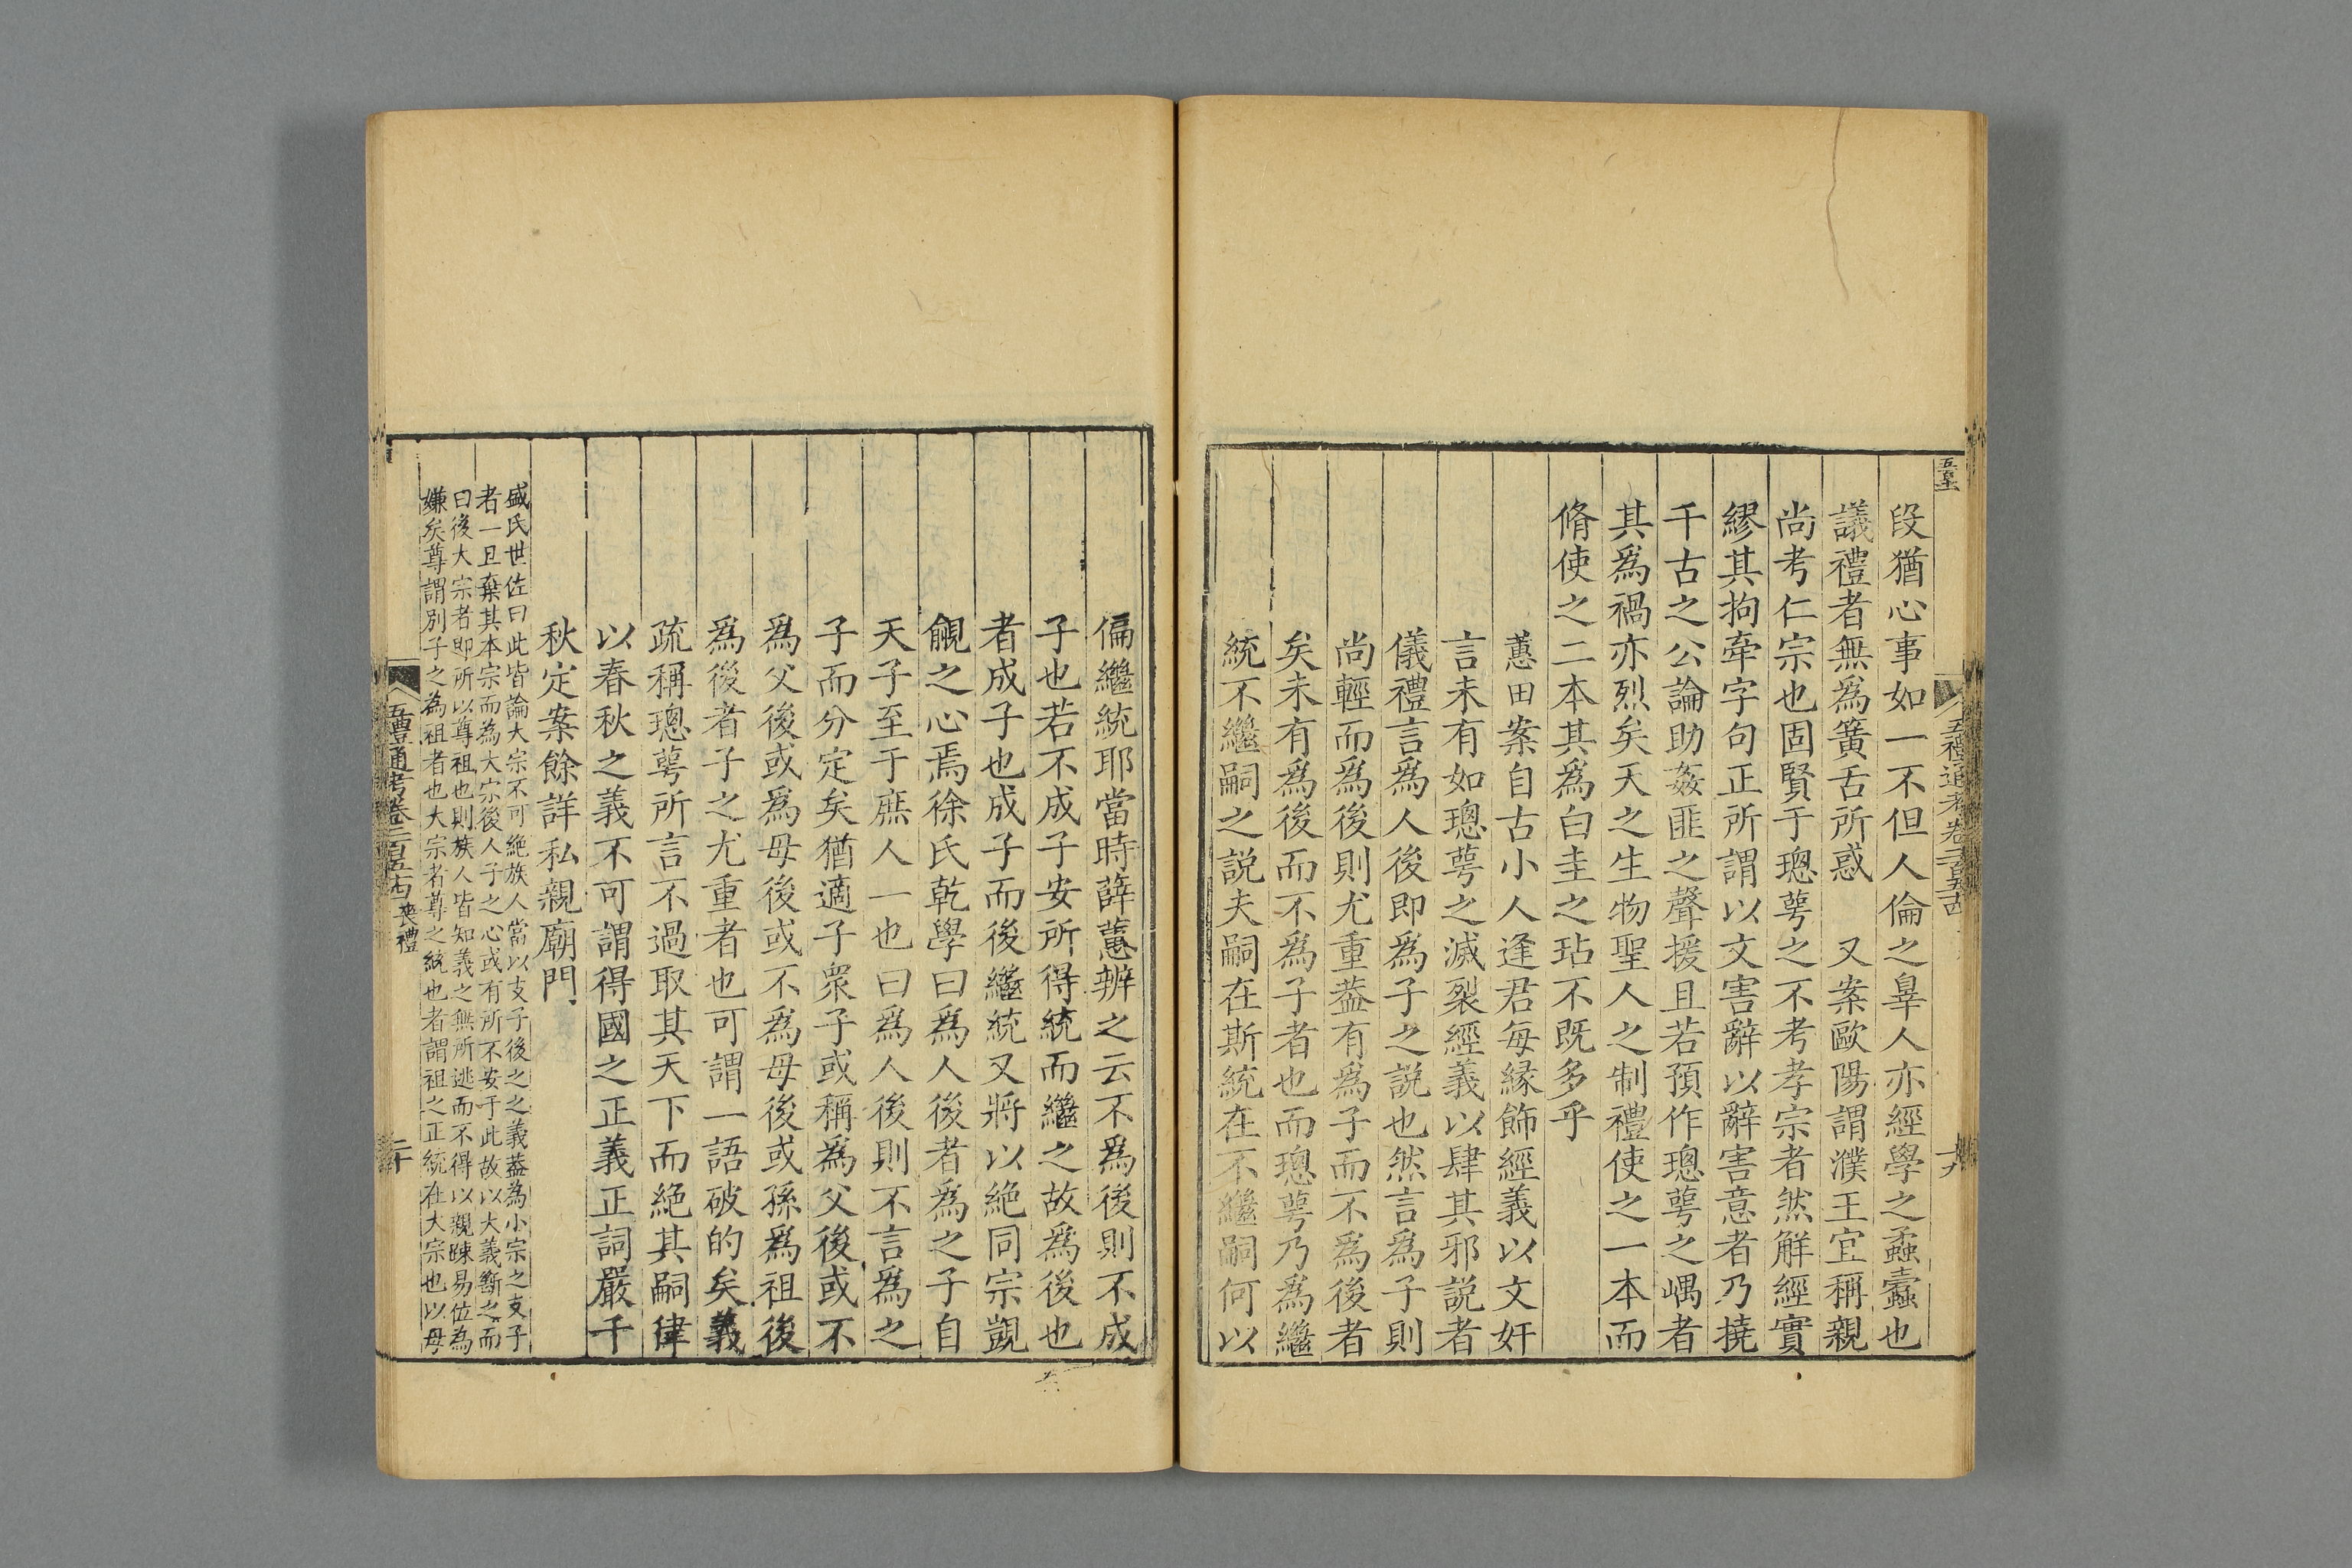 段猶心事如一不但人倫之辠人亦經學之蟊蠹也
議禮者無爲簧舌所惑　又案歐陽謂濮王宜稱親
尚考仁宗也固賢于璁萼之不考孝宗者然解經實
繆其拘牽字句正所謂以文害辭以辭害意者乃撓
千古之公論助姦匪之聲援且若預作璁萼之嵎者
其爲禍亦烈矣天之生物聖人之制禮使之一本而
脩使之二本其爲白圭之玷不既多乎
蕙田案自古小人逢君每緣飾經義以文奸
言未有如璁萼之滅裂經義以肆其邪説者
儀禮言爲人後即爲子之説也然言爲子則
尚輕而爲後則尤重葢有爲子而不爲後者
矣未有爲後而不爲子者也而璁萼乃爲繼
統不繼嗣之説夫嗣在斯統在不繼嗣何以
偏繼統耶當時薛蕙辨之云不爲後則不成
子也若不成子安所得統而繼之故爲後也
者成子也成子而後繼統又將以絕同宗覬
覦之心焉徐氏乾學曰爲人後者爲之子自
天子至于庶人一也曰爲人後則不言爲之
子而分定矣猶適子衆子或稱爲父後或不
爲父後或爲母後或不爲母後或孫爲祖後
爲後者子之尤重者也可謂一語破的矣義
疏稱璁萼所言不過取其天下而絕其嗣律
以春秋之義不可謂得國之正義正詞嚴千
秋定案餘詳私親廟門
盛氏世佐曰此皆論大宗不可絕族人當以支子後之之義葢為小宗之支子
者一旦棄其本宗而為大宗後人子之心或有所不安于此故以大義斷之而
曰後大宗者即所以尊祖也則族人皆知義之無所逃而不得以親疎易位為
嫌矣尊謂別子之為祖者也大宗者尊之統也者謂祖之正統在大宗也以母
五禮通考卷二百五十四　喪禮
二十